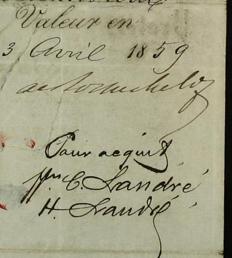 Valeur en
3 Avril 1859
Pour acquit
C. Landré
H. Landré